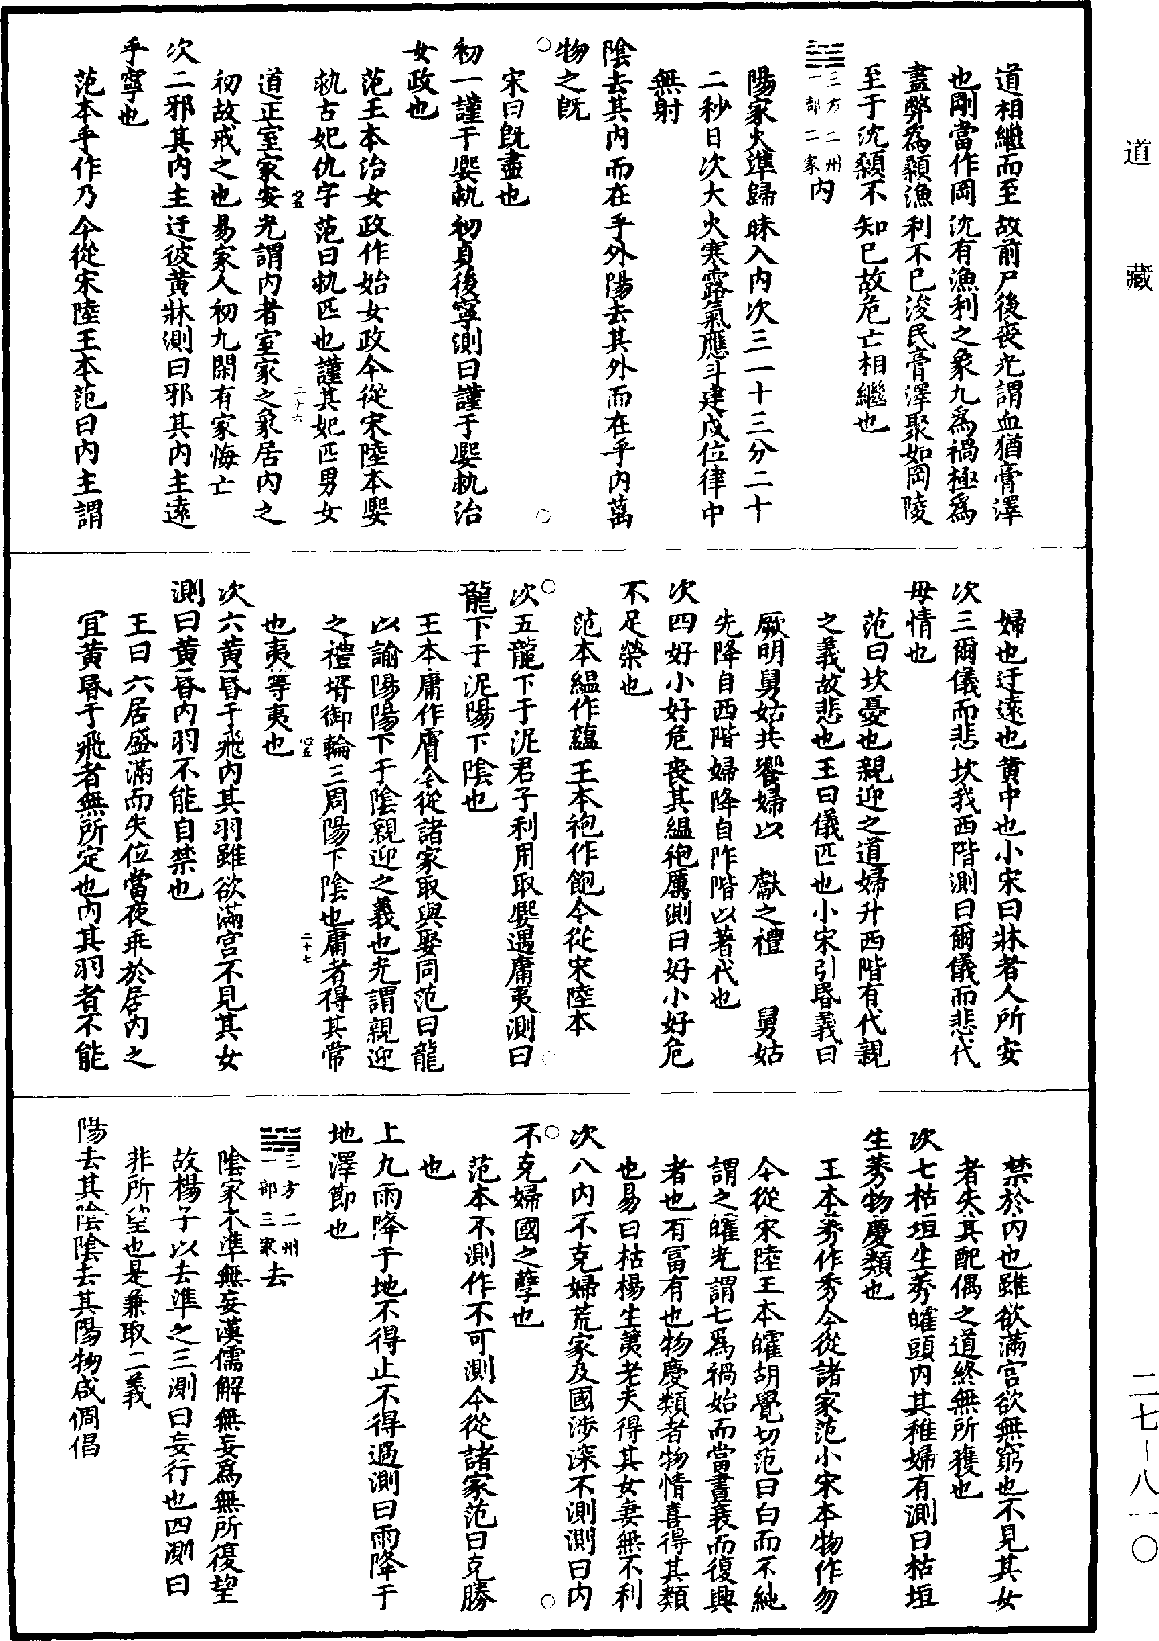 道相繼而至故前尸後喪光謂血猶膏澤
也剛當作岡沈有漁利之象九爲禍極爲
盡弊爲顙漁利不已浚民膏澤聚如岡陵
至于沈顙不知已故危亡相繼也
三方二州
一部二家內
陽家火準歸昧入內次三一十三分二十
二秒日次大火寒露氣應斗建戌位律中
無射
陰去其內而在乎外陽去其外而在乎內萬
物之旣
宋曰旣盡也
初一謹于㜸䣛初貞後寧測曰謹于㜸䣛治
女政也
范王本治女政作始女政今從宋陸本㜸
䣛古妃仇字范曰䣛匹也謹其妃匹男女
道正室家安光謂內者室家之象居內之
初故戒之也易家人初九閑有家悔亡
次二邪其內主迂彼黃牀測曰邪其內主遠
乎寧也
范本乎作乃今從宋陸王本范曰內主謂
四五
二十六
婦也迂遠也黃中也小宋曰牀者人所安
次三爾儀而悲坎我西階測曰爾儀而悲代
母情也
范曰坎憂也親迎之道婦升西階有代親
之義故悲也王曰儀匹也小宋引昏義曰
厥明舅姑共饗婦以 獻之禮 舅姑
先降自西階婦降自阼階以著代也
次四好小好危喪其縕袍厲測曰好小好危
不足榮也
范本縕作蘊王本袍作飽今從宋陸本
次五龍下于泥君子利用取㜸遇庸夷測曰
龍下于泥陽下陰也
王本庸作膚今從諸家取與娶同范曰龍
以諭陽陽下于陰親迎之義也光謂親迎
之禮壻御輪三周陽下陰也庸者得其常
也夷等夷也
次六黃昏于飛內其羽雖欲滿宮不見其女
測曰黃昏內羽不能自禁也
王曰六居盛滿而失位當夜乖於居內之
宜黃昏于飛者無所定也內其羽者不能
四五
二十七
禁於內也雖欲滿宮欲無窮也不見其女
者失其配偶之道終無所獲也
次七枯垣生莠皬頭內其稚婦有測曰枯垣
生莠物慶類也
王本莠作秀今從諸家范小宋本物作勿
今從宋陸王本皬胡覺切范曰白而不純
謂之皬光謂七爲禍始而當晝義而復興
者也有冨有也物慶類者物情喜得其類
也易曰枯楊生荑老夫得其女妻無不利
次八內不克婦荒家及國涉深不測測曰內
不克婦國之孽也
范本不測作不可測今從諸家范曰克勝
也
上九雨降于地不得止不得過測曰雨降于
地澤節也
三方二州
一部三家去
陰家木準無妄漢儒解無妄爲無所復望
故楊子以去準之三測曰妄行也四測曰
非所望也是兼取二義
陽去其陰陰去其陽物咸倜倡
道
藏
二七－八一〇